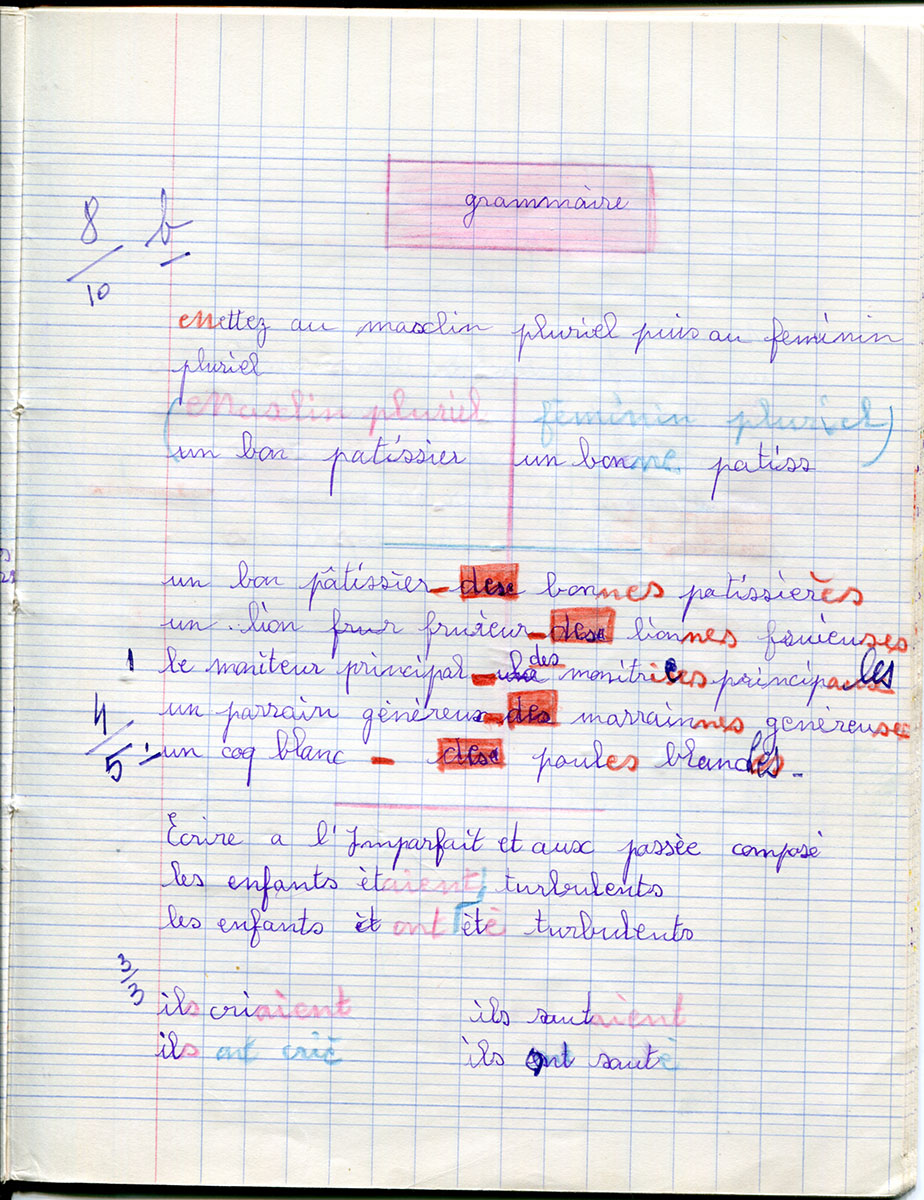 grammaire
8 b
10
Mettez au masclin pluriel puis au feminin
pluriel
(Masclin pluriel feminin pluriel)
un bon patissier un bonne patiss
un bon pâtissier - des bonnes patissières
un lion furieur - des lionnes furieuses
1 le moniteur principal - des monitrices principales
un parrain généreux - des marrainnes généreuses
4
5
un coq blanc - des poules blanches -
Ecrire a l'Imparfait et aux passèe composé
les enfants ètaient turbulents
les enfants ont ètè turbulents
3/3
ils criaient ils sautaient
ils ont criè ils ont sautè